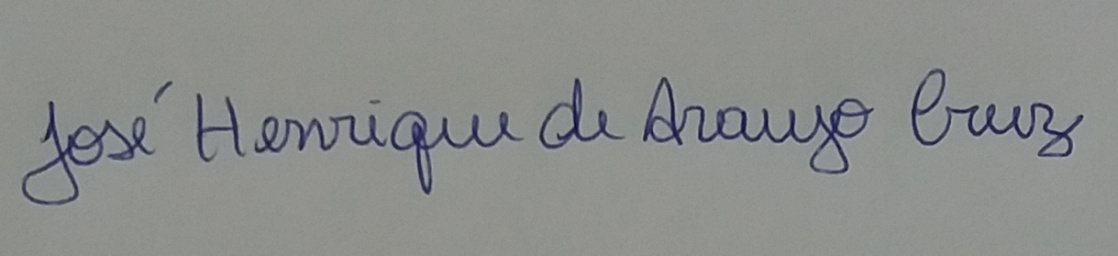 José Henrique de Araujo Cruz